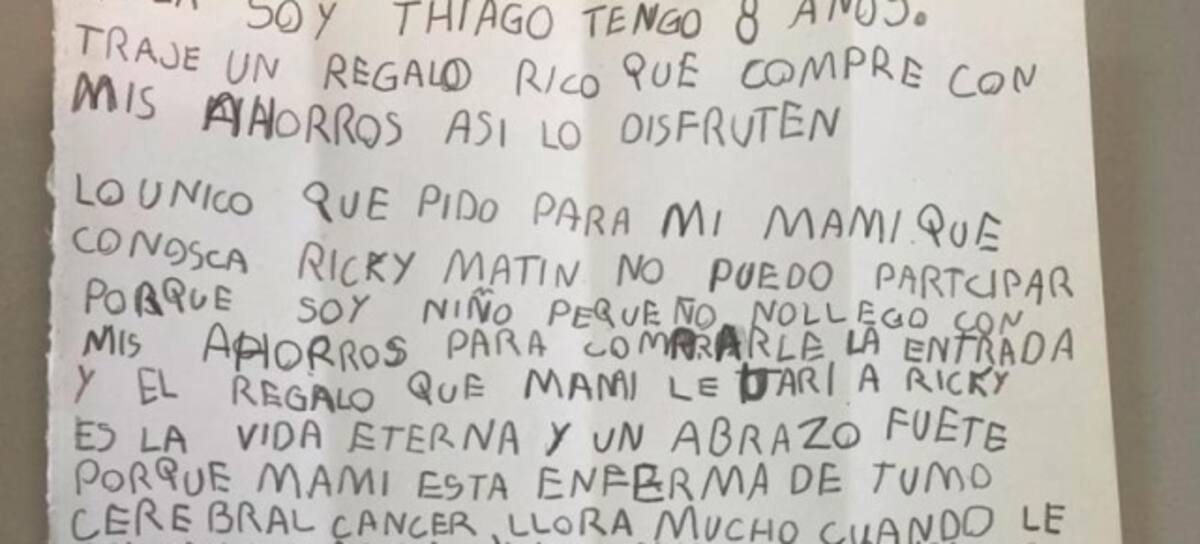 SOY THIAGO TENGO 8 AÑOS.
TRAJE UN REGALO RICO QUE COMPRE CON
MIS AHORROS ASI LO DISFRUTEN
LO UNICO QUE PIDO PARA MI MAMI QUE
CONOSCA RICKY MATIN NO PUEDO PARTCIPAR
PORQUE SOY NIÑO PEQUEÑO NO LLEGO CON
MIS AHORROS PARA COMPRARLE LA ENTRADA
Y EL REGALO QUE MAMI LE DARI A RICKY
ES LA VIDA ETERNA Y UN ABRAZO FUETE
PORQUE MAMI ESTA ENFERMA DE TUMO
CEREBRAL CANCER LLORA MUCHO CUANDO LE